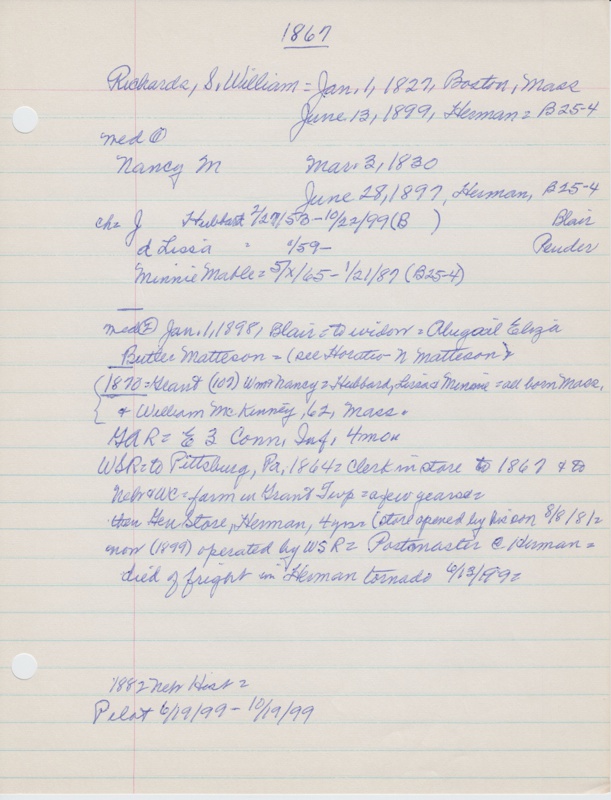 1867
Richards, S. William = Jan. 1, 1827, Boston, Mass
June 13, 1899, Herman = B25-4
med ①
Nancy M Mar. 3, 1830
June 28, 1897, Herman, B25-4
ch = J Hubbard 2/27/53 - 10/22/99 (B ) Blair
d Lissa " /59 - Pender
Minnie Mable = 5/x/65 - 1/21/87 (B25-4)
med ② Jan. 1, 1898, Blair = to widow = Abigail Eliza
Butler Matteson = (see Horatio N Matteson)
(1870 = Grant (107) Wm & Nancy = Hubbard, Lissa & Minnie = all born Mass,
& William McKinney, 62, Mass.
GAR = E 3 Conn, Inf, 4 mon
WSR = to Pittsburg, Pa, 1864 = Clerk in store to 1867 & to
Nebr & WC = farm in Grant Twp = a few years =
then Gen Store, Herman, 4 yrs = (store opened by his son 8/8/81 =
now (1899) operated by WSR = Postmaster @ Herman =
died of fright in Herman tornado 6/13/99 =
1882 Nebr Hist =
Pilot 6/19/99 - 10/19/99